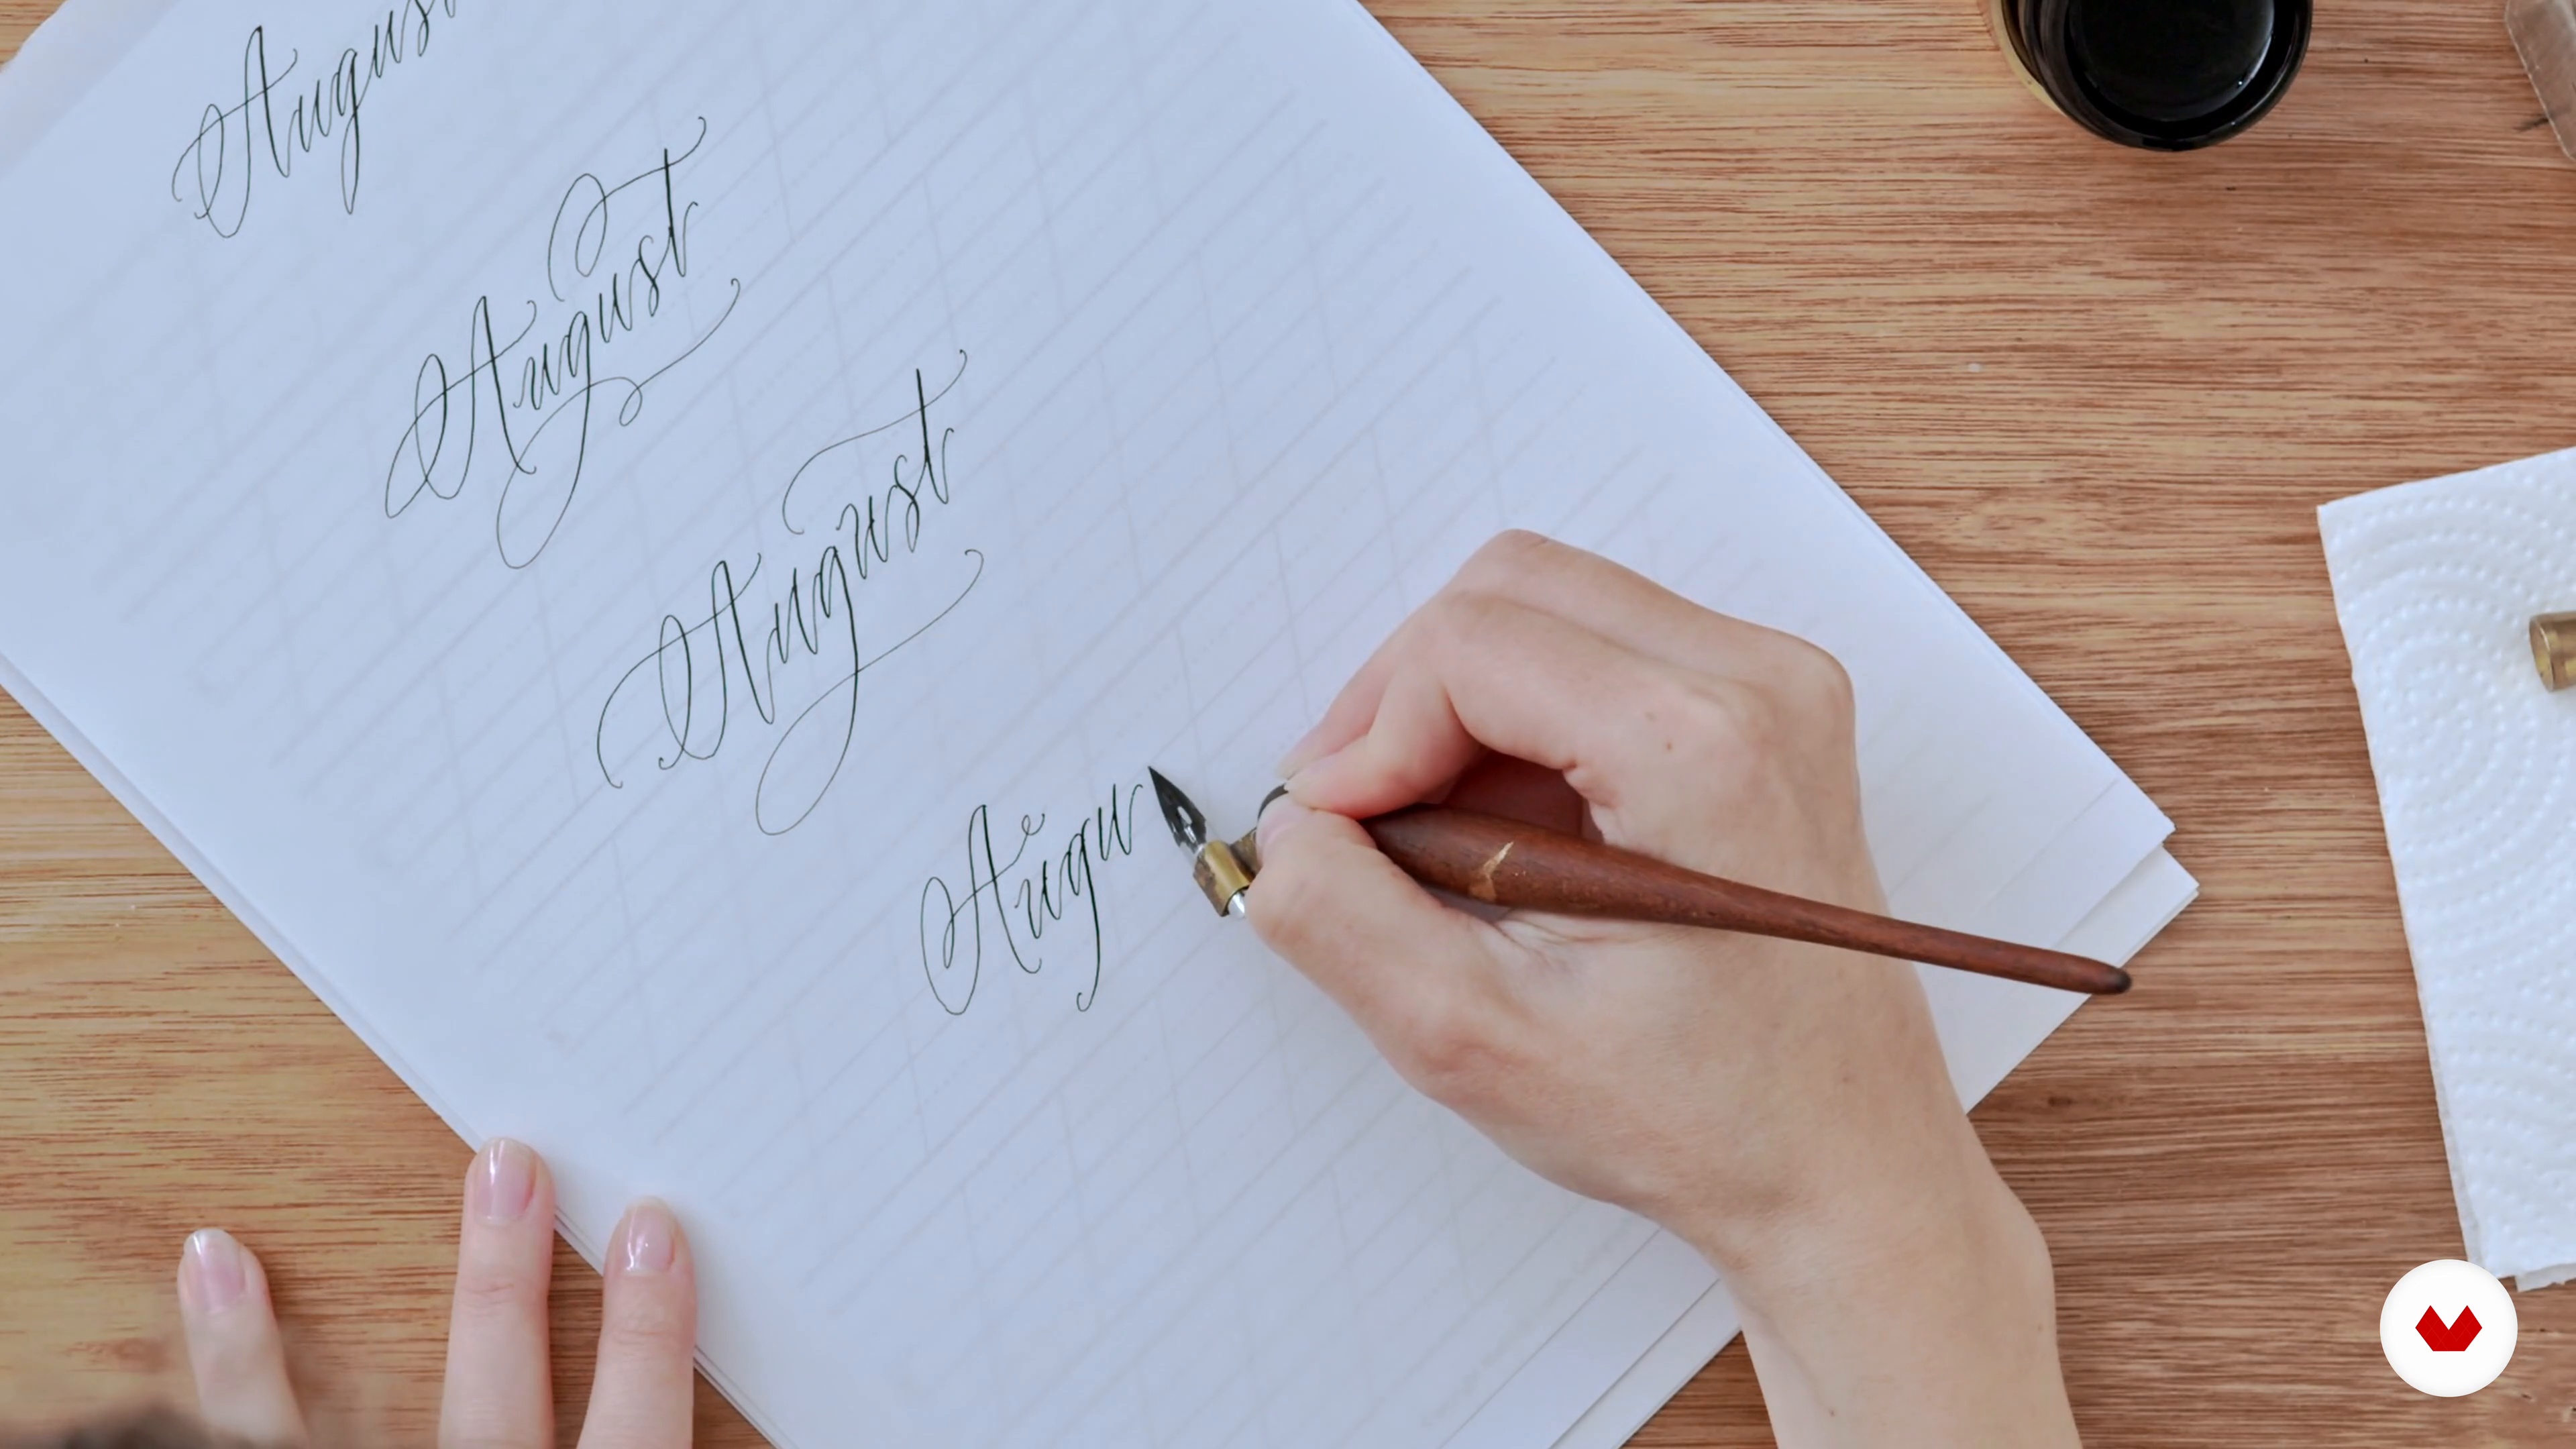 August
August
August
Augu